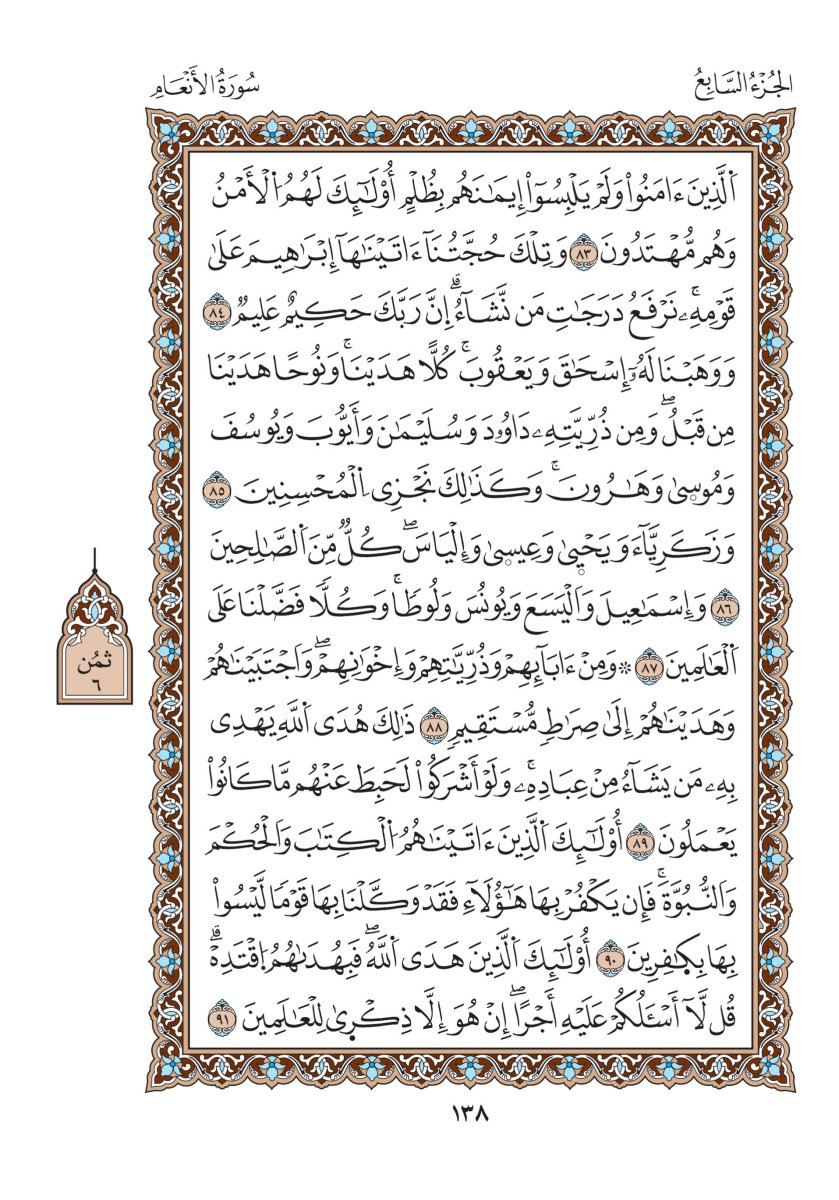 الجُزْءُ السَّابِعُ
سُورَةُ الأَنْعَامِ
اَ۬لذِينَ ءَامَنُواْ وَلَمْ يَلْبِسُوٓاْ إِيمَٰنَهُم بِظُلْمٍ أُوْلَٰٓئِكَ لَهُمُ اُ۬لْأَمْنُ
وَهُم مُّهْتَدُونَ ٨٣ وَتِلْكَ حُجَّتُنَآ ءَاتَيْنَٰهَآ إِبْرَٰهِيمَ عَلَىٰ
قَوْمِهِۦۚ نَرْفَعُ دَرَجَٰتِ مَن نَّشَآءُۗ إِنَّ رَبَّكَ حَكِيمٌ عَلِيمٌ ٨٤
وَوَهَبْنَا لَهُۥٓ إِسْحَٰقَ وَيَعْقُوبَۚ كُلًّا هَدَيْنَاۚ وَنُوحًا هَدَيْنَا
مِن قَبْلُۖ وَمِن ذُرِّيَّتِهِۦ دَاوُۥدَ وَسُلَيْمَٰنَ وَأَيُّوبَ وَيُوسُفَ
وَمُوسۭىٰ وَهَٰرُونَۚ وَكَذَٰلِكَ نَجْزِى اِ۬لْمُحْسِنِينَ ٨٥
وَزَكَرِيَّآءَ وَيَحْيۭىٰ وَعِيسۭىٰ وَإِلْيَاسَۖ كُلٌّ مِّنَ اَ۬لصَّٰلِحِينَ
٨٦ وَإِسْمَٰعِيلَ وَالْيَسَعَ وَيُونُسَ وَلُوطًاۚ وَكُلًّا فَضَّلْنَا عَلَى
اَ۬لْعَٰلَمِينَ ٨٧ ۞ وَمِنْ ءَابَآئِهِمْ وَذُرِّيَّٰتِهِمْ وَإِخْوَٰنِهِمْۖ وَاجْتَبَيْنَٰهُمْ
وَهَدَيْنَٰهُمْ إِلَىٰ صِرَٰطٍ مُّسْتَقِيمٍ ٨٨ ذَٰلِكَ هُدَى اَ۬للَّهِ يَهْدِى
بِهِۦ مَن يَشَآءُ مِنْ عِبَادِهِۦۚ وَلَوْ أَشْرَكُواْ لَحَبِطَ عَنْهُم مَّا كَانُواْ
يَعْمَلُونَ ٨٩ أُوْلَٰٓئِكَ اَ۬لذِينَ ءَاتَيْنَٰهُمُ اُ۬لْكِتَٰبَ وَالْحُكْمَ
وَالنُّبُوَّةَۚ فَإِن يَكْفُرْ بِهَا هَٰٓؤُلَآءِ فَقَدْ وَكَّلْنَا بِهَا قَوْمًا لَّيْسُواْ
بِهَا بِكٰ۪فِرِينَ ٩٠ أُوْلَٰٓئِكَ اَ۬لذِينَ هَدَى اَ۬للَّهُۖ فَبِهُدَىٰهُمُ اُ۪قْتَدِهْۗ
قُل لَّآ أَسْـَٔلُكُمْ عَلَيْهِ أَجْرًاۖ إِنْ هُوَ إِلَّا ذِكْرۭىٰ لِلْعَٰلَمِينَ ٩١
ثمُن
٦
١٣٨